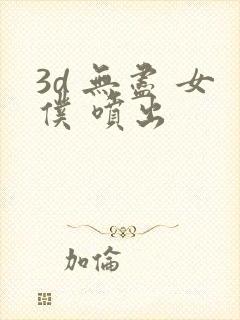 3d 無盡 女
僕 噴出
加倫